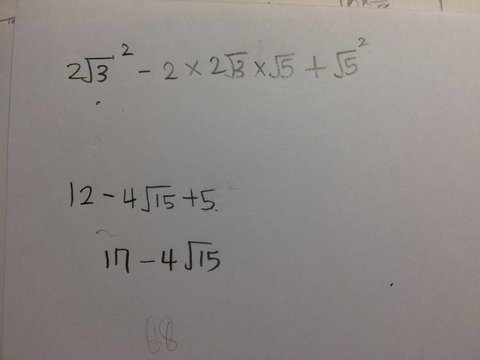 2√3² - 2 × 2√3 × √5 + √5²
12 - 4√15 + 5
17 - 4√15